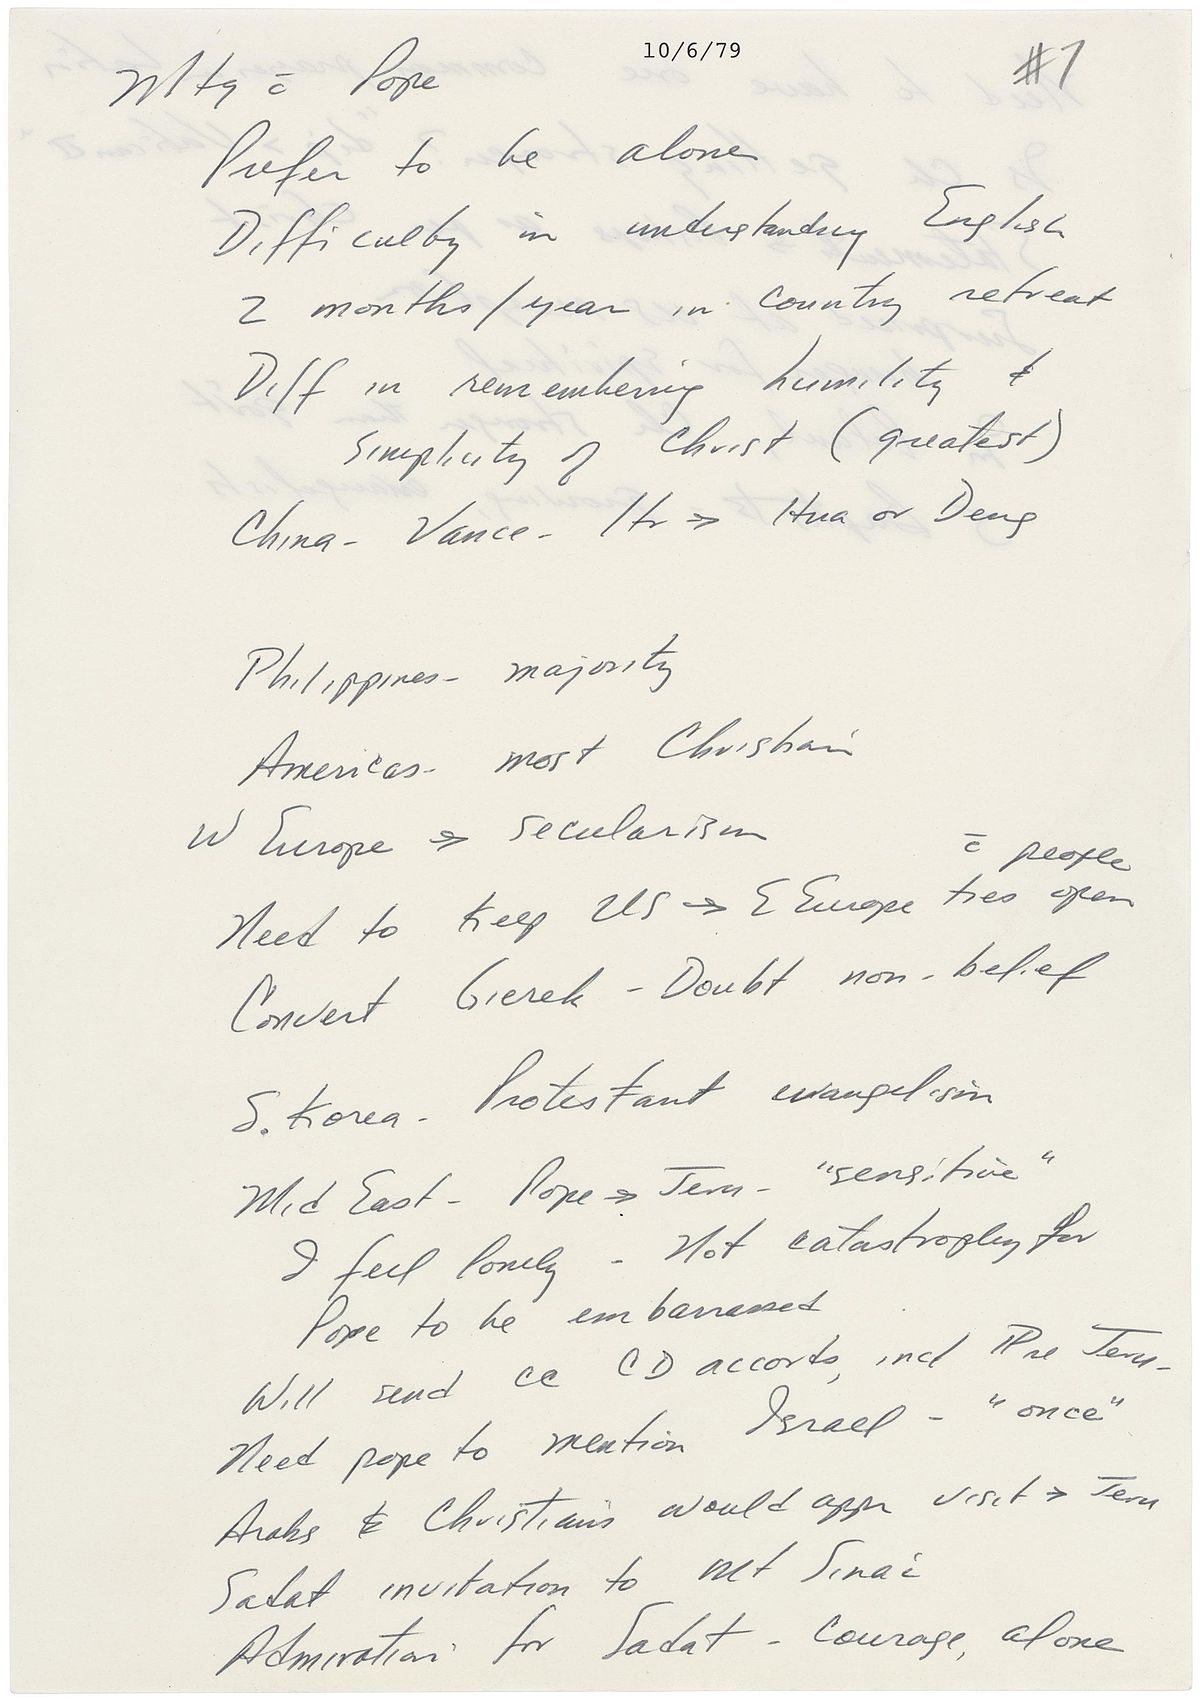 10/6/79
#1
Mtg c̄ Pope
Prefer to be alone
Difficulty in understanding English
2 months/year in country retreat
Diff in remembering humility &
simplicity of Christ (greatest)
China - Vance - ltr → Hua or Deng
Philippines - majority
Americas - most Christian
W Europe → secularism
c̄ people
Need to keep US → E Europe ties open
Convert Gierek - Doubt non-belief
S. Korea - Protestant evangelism
Mid East - Pope → Jeru - "sensitive"
I feel lonely - Not catastrophy for
Pope to be embarrassed
Will send cc CD accords, incl Pre Jeru -
Need pope to mention Israel - "once"
Arabs & Christians would appr visit → Jeru
Sadat invitation to Mt Sinai
Admiration for Sadat - courage, alone